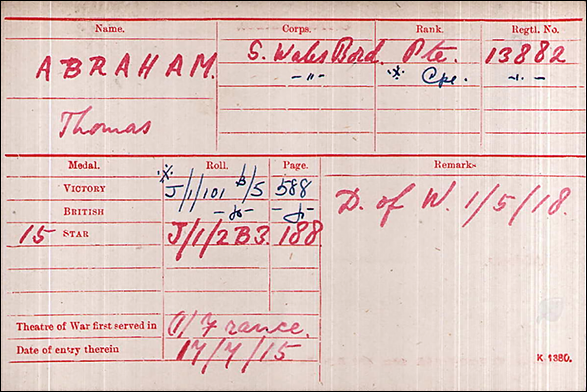 Name. Corps. Rank. Regtl. No.
ABRAHAM. S. Wales Bord. Pte. 13882
-"- ※ Cpl. -"-
Thomas
Medal. Roll. Page. Remarks
VICTORY ※ J/1/101 B/5 588
BRITISH -do- -do-
15 STAR J/1/2B3. 188
D. of W. 1/5/18.
Theatre of War first served in (1) France.
Date of entry therein 17/7/15
K 1380.